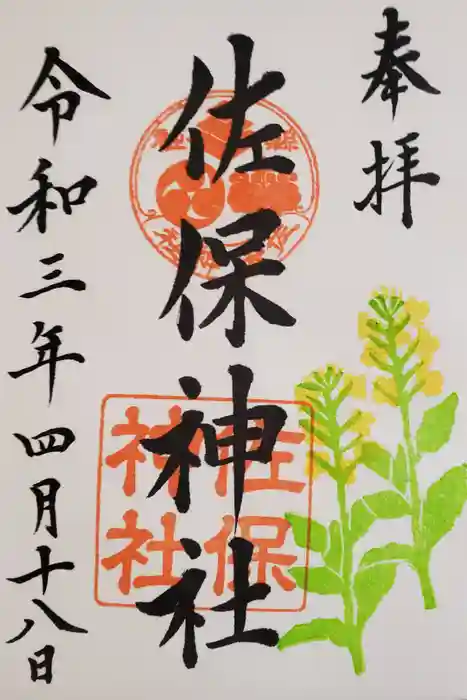 奉拝
佐保神社
佐保
神社
令和三年四月十八日